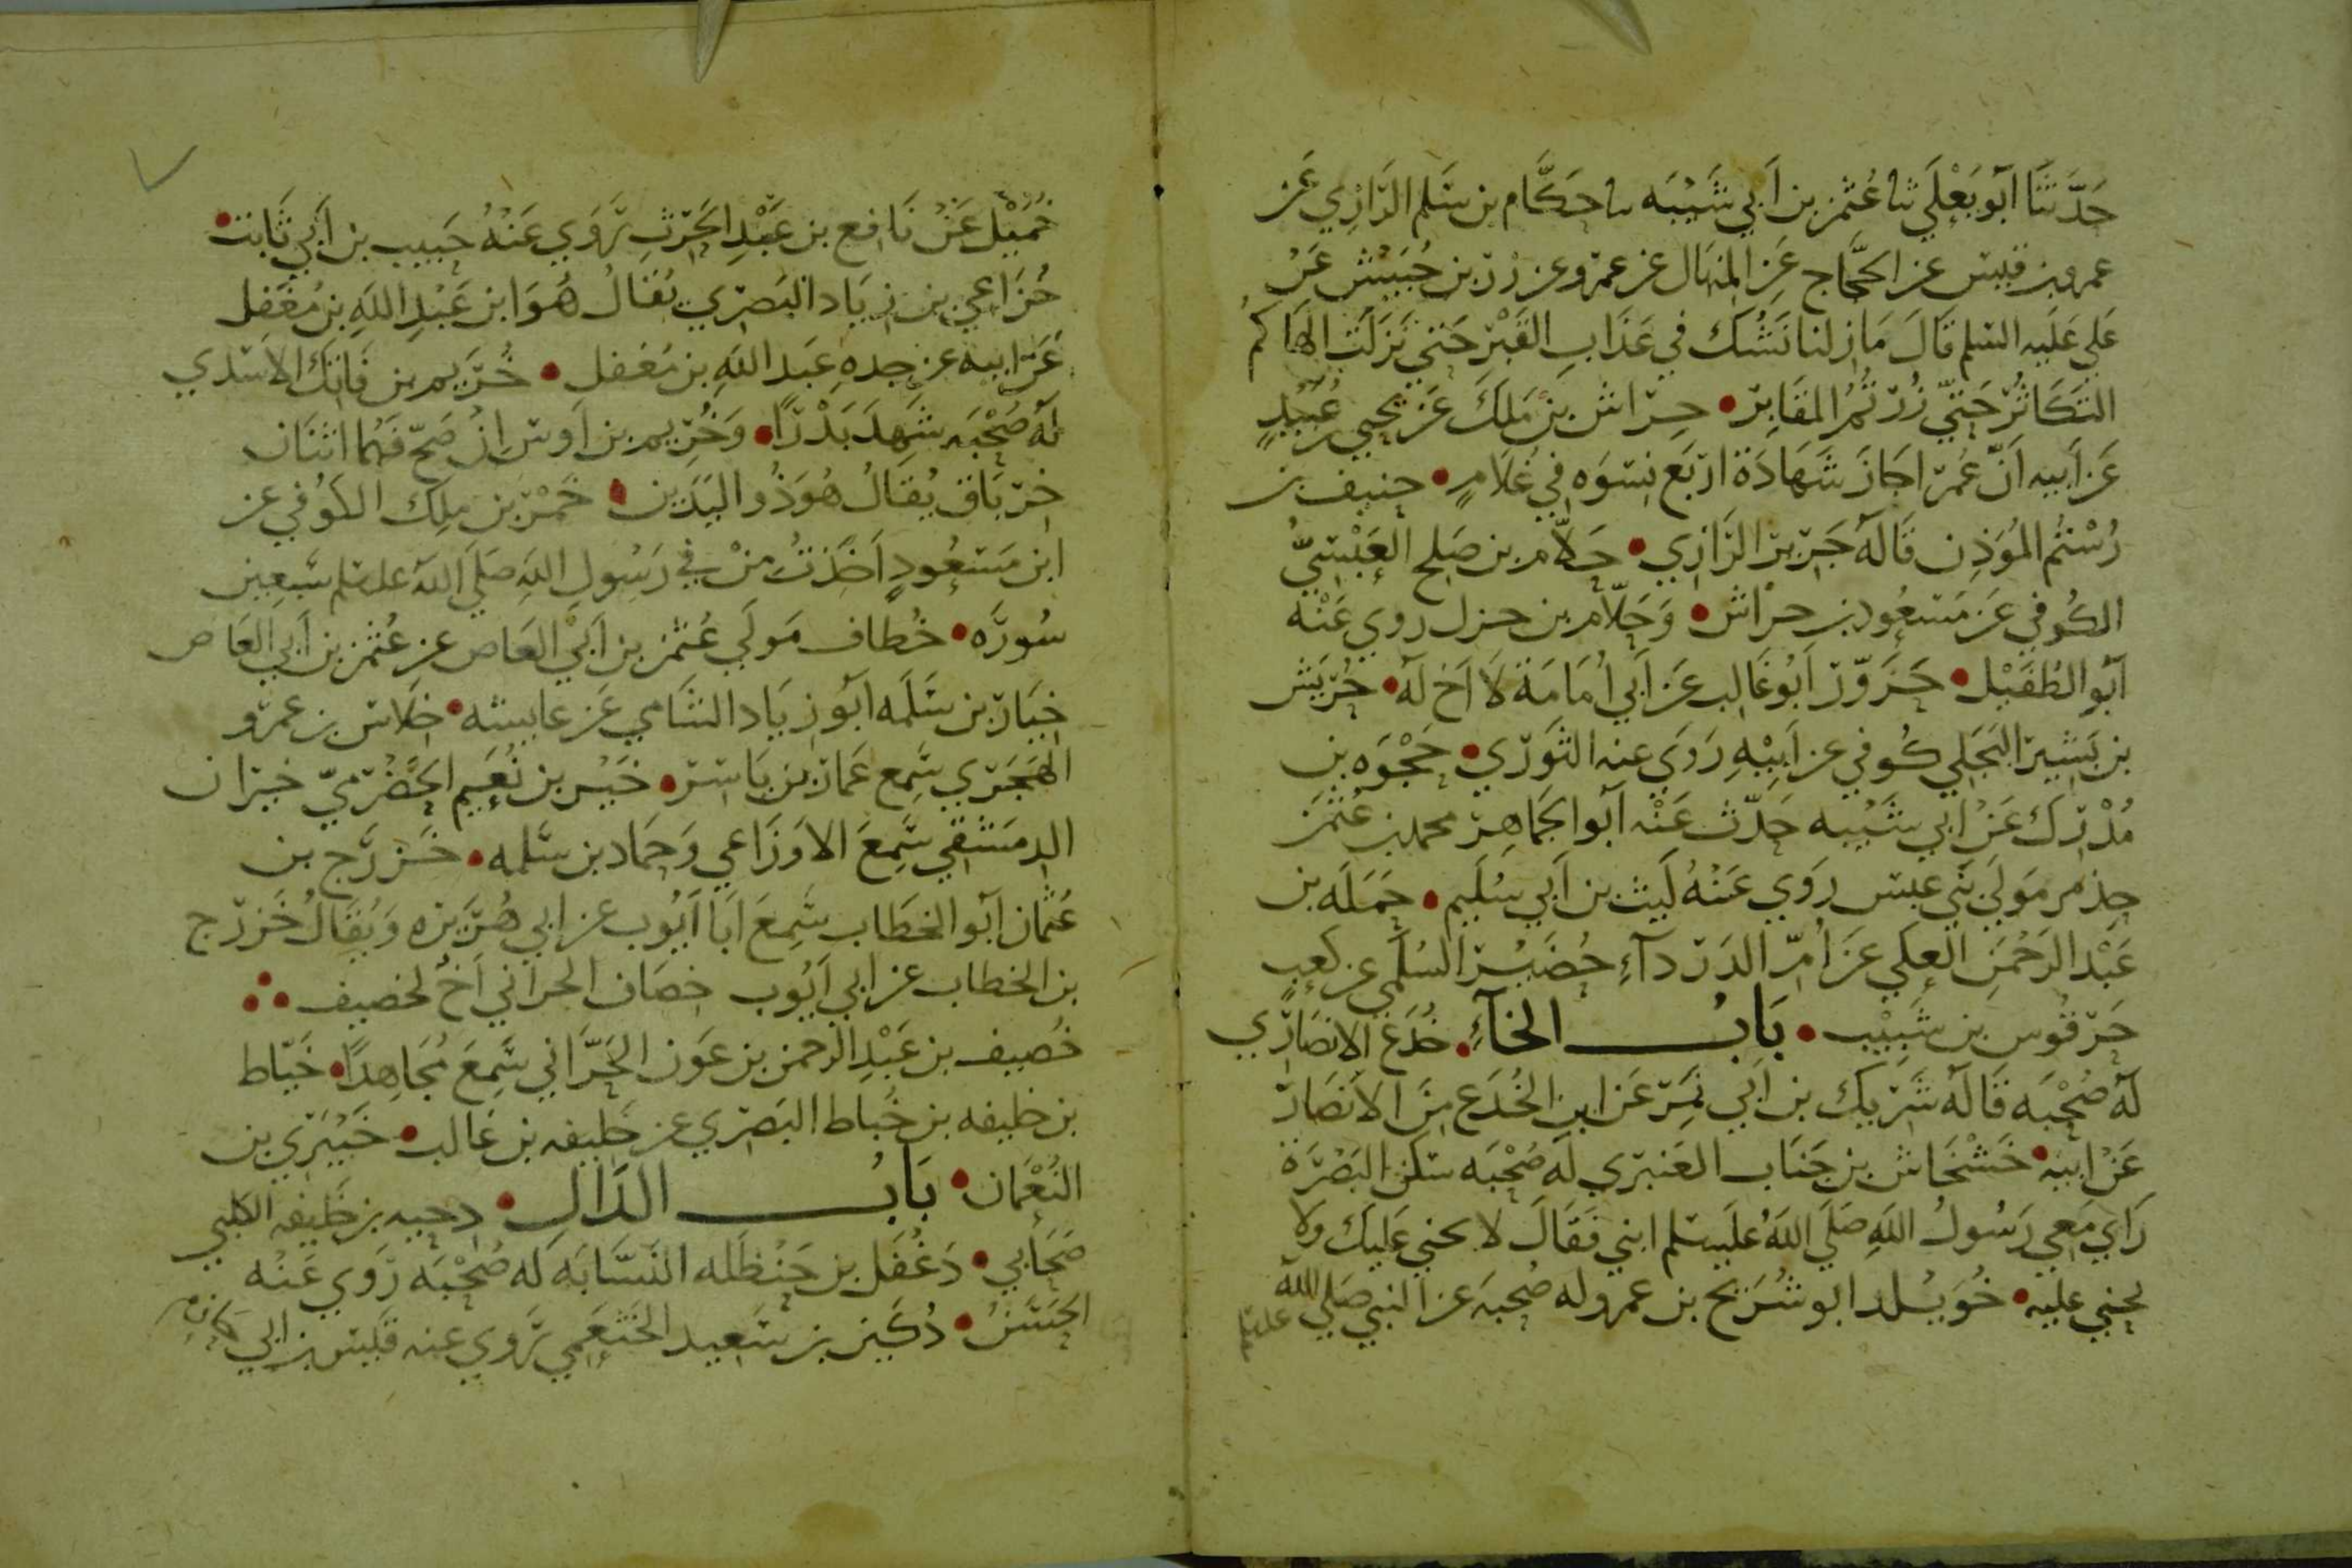 حَدَّثَنَا أَبُو يَعْلَي ثنا عُثمن بن أَبي شَيْبَه نا حَكَّام بن سَلم الرَّازي عَن
عمرو بن قيس عن الحجَّاج عَنِ المنهَال عن عمرو عن زِرّ بن حُبَيْش عَنْ
عَلي عَلَيه السلم قَالَ مَا زلنا نَشُكّ في عَذَابِ القَبْر حَتي نَزَلَت الهَاكمُ
التكَاثُرُ حَتيّ زُرْتُمُ المقَابِرَ • حِراش بن مَلِك عَن يحيي بن عُبَيْدٍ
عَن أَبيه أَنَّ عُمَر اجَازَ شَهَادَة اربَع نِسوَه في غُلَامٍ • حنيف بن
رُسْتُم المُوَذِن قَالَهُ جَرير الرَّازي • حَلاّم بن صَلح العَبْسيُّ
الكُوفي عَن مَسعُود بن حرَاش • وَحَلاّم بن حزل روي عَنْه
أَبُو الطُفَيْل • حَزَوَّر أَبُو غَالِب عَن أَبي أُمَامَة لَا أَخ لَهُ • حُرَيش
بن بَشِير البَجَلي كُوفي عن أَبِيْهِ رَوَي عنه الثَوري • حَجْوَه بن
مُدْرِك عَنْ ابي شَيْبه حَدّث عَنْه أَبُو الجَمَاهِر محمد بن عُثمَن
حِذيم مَولَي بَني عبس رَوَي عَنْهُ لَيث بن أَبي سُلَيم • حَمَلَه بن
عَبْد الرَحْمَنِ العكي عَن أُمّ الدَرْدآءِ حُضَيْر السُلَمي عن كَعبٍ
حَرقُوس بن شَبِيْب • بَابُ الخآءِ • خُدَع الانصَاري
لَهُ صُحْبَه قَالَهُ شَرِيك بن أَبي نَمِر عَن ابن الخُدَع مِنَ الأَنصَار
عَنْ ابيه • خَشْخَاش بن جَنَاب العَنبَري لَه صُحْبَه سَكَن البَصْرَة
رَاي مَعي رَسُولُ اللهِ صَلَي اللهُ عَلَيه سلم ابني فَقَالَ لا يحني عَلَيك وَلا
تحني عليه • خُوَيْلد ابو شُرَيح بن عمرو له صُحبَه عَن النبي صَلي اللهُ عليه
خُمَيْل عَنْ نَافع بن عَبْدِ الحَرث رَوَي عَنْهُ حَبيب بن أَبي ثَابت •
خُزَاعي بن زيَاد البَصري يُقَالُ هُوَ ابن عَبْدِ اللهِ بن مُغَفل
عَن ابيه عن جِدهِ عَبد اللهِ بن مُغَفل • خُرَيم بن فَاتِك الاسَدي
لَهُ صُحْبَه شَهِدَ بَدْرًا • وَخُرَيم بن أَوس إنْ صَحّ فَهُما اثنَان
خربَاق يُقَالُ هُوَ ذُو اليَدَين • خَمْر بن مَلِك الكُوفي عن
ابن مَسعُودٍ أَخَذتُ مِنْ في رَسُولِ اللهِ صَلَي اللهُ عليه سلم سَبعين
سُورَه • خُطاف مَولَي عُثمن بن أَبي العَاص عن عُثمن بن أَبي العَاص
خيَار بن سَلَمَه أَبُو زيَاد الشَامي عَن عايشه • خِلَاس بن عمرو
الهَجَري سَمِع عَمار بن يَاسر • خَيْر بن نُعَيم الحَضْرَميّ خيران
الدمَشقي سَمِعَ الاوزَاعي وَحَماد بن سَلمه • خَزرَج بن
عُثمان أَبُو الخطَاب سَمِعَ أَبَا أَيُوب عن ابي هُرَيره وَيُقَالُ خَزرَج
بن الخطاب عن أبي أَيُوب خصَاف الحراني أَخٌ لخصيف •
خُصيف بن عَبْدِ الرحمن بن عَون الحَرَّاني سَمِعَ مُجَاهِدًا • خَيّاط
بن خليفه بن خَياط البَصَري عن خليفه بن غَالب • خَيْبَري بن
النُعْمَان • بَابُ الدَّالِ • دحيه بن خَليفه الكلبي
صَحَابي • دَغْفَل بن حَنْظَله النَسَّابَه لَه صُحْبَه رَوَي عَنْه
الحَسَنُ • دُكَين بن سَعيد الخَثعَمي رَوي عنه قَيس بن ابي حازم